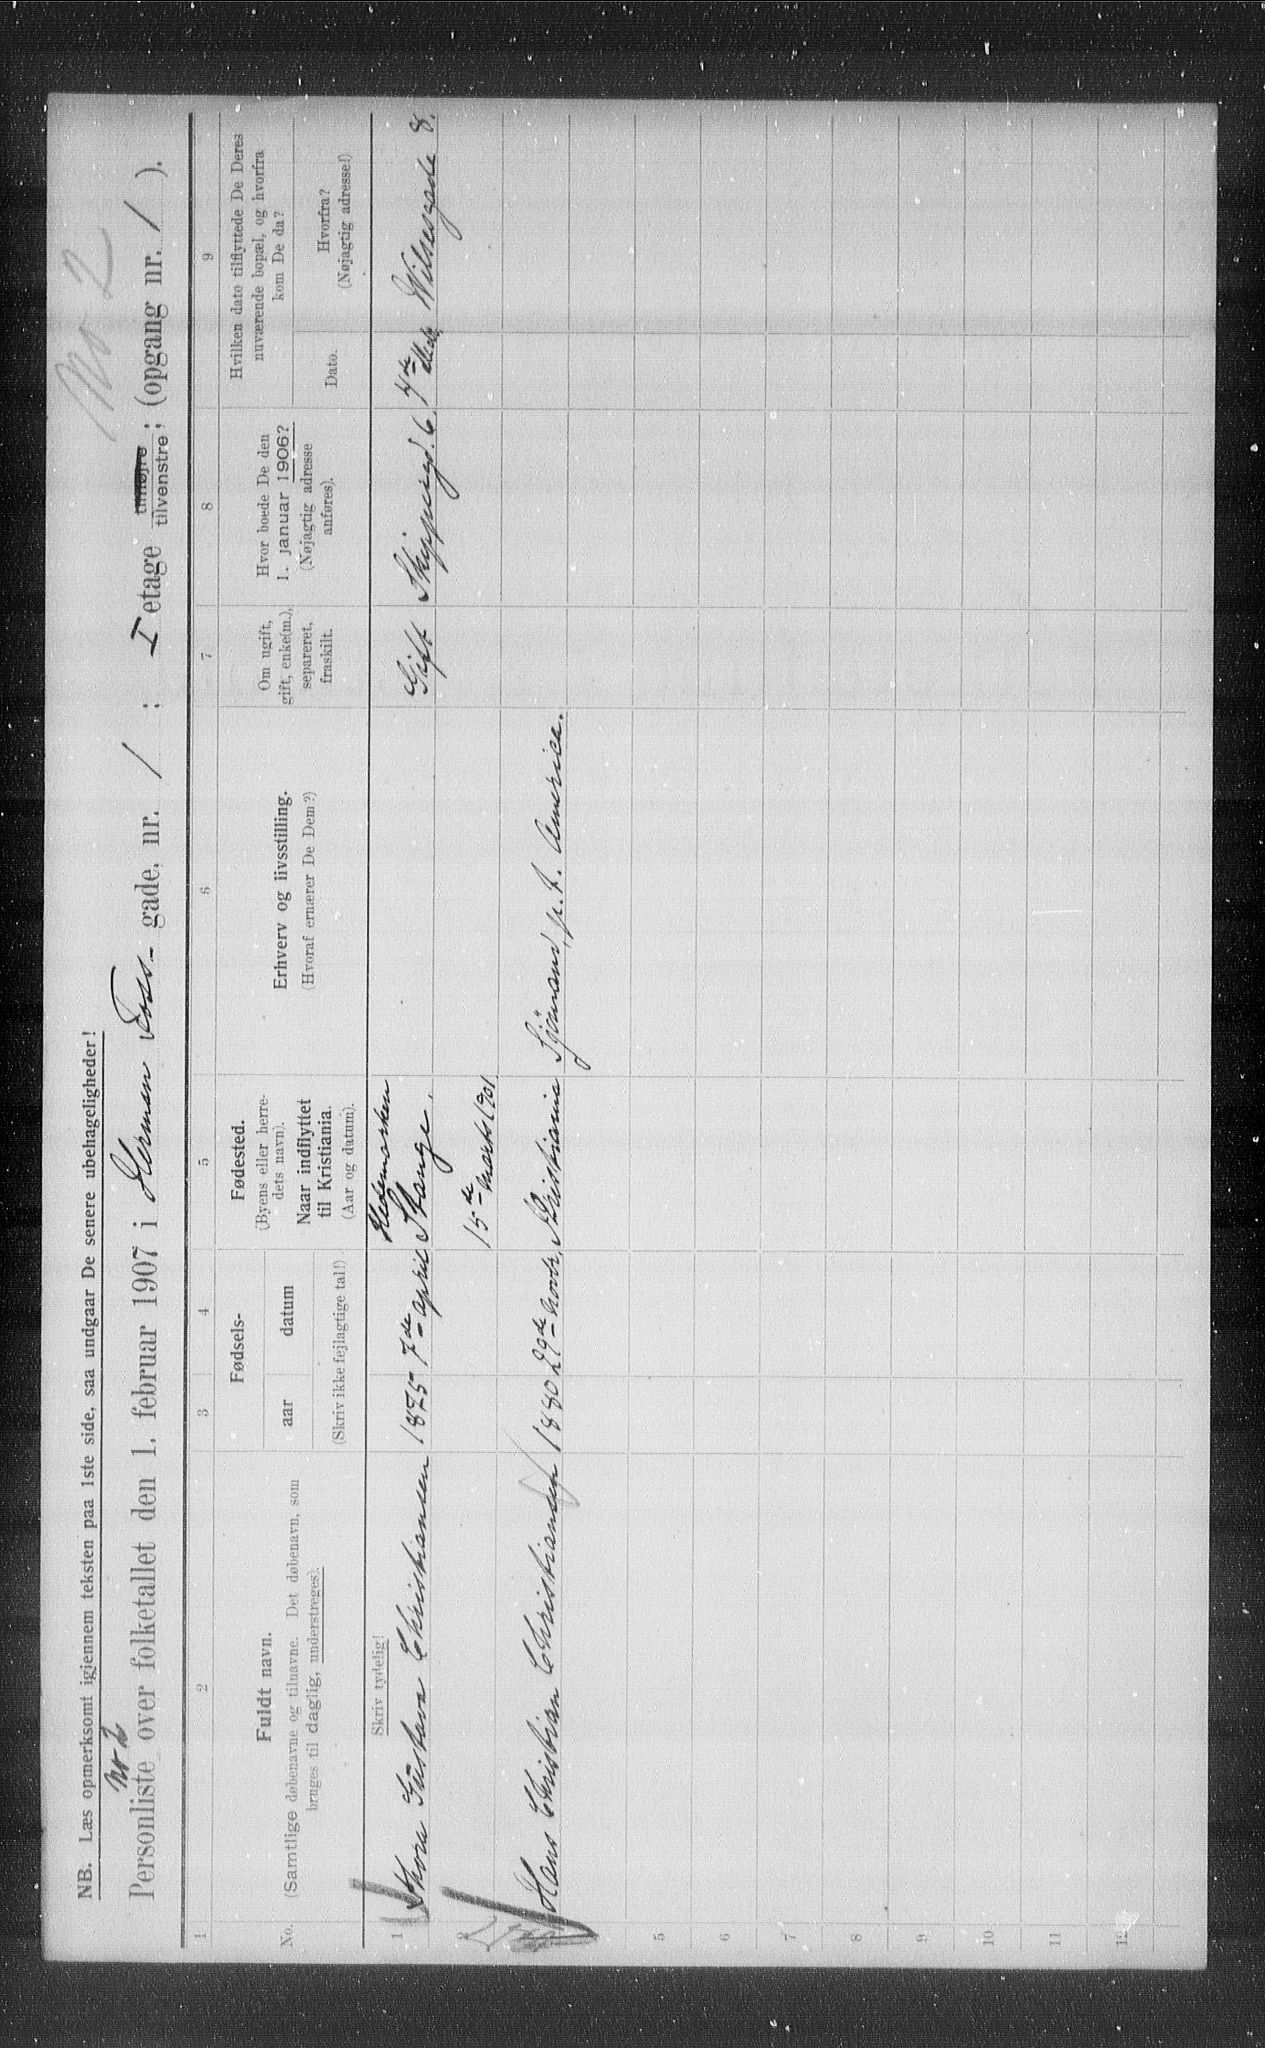 No 2
NB. Læs opmerksomt igjennem teksten paa 1ste side, saa undgaar De senere ubehageligheder!
No 2
Personliste over folketallet den 1. februar 1907 i Herman Foss- gade, nr. 1 ; I etage tilhøjre tilvenstre; (opgang nr. 1 ).
1 2 3 4 5 6 7 8 9
No.
Fuldt navn.
(Samtlige døbenavne og tilnavne. Det døbenavn, som
bruges til daglig, understreges).
Fødsels-
aar datum
(Skriv ikke fejlagtige tal!)
Fødested.
(Byens eller herre-
dets navn).
Naar indflyttet
til Kristiania.
(Aar og datum).
Erhverv og livsstilling.
(Hvoraf ernærer De Dem?)
Om ugift,
gift, enke(m.),
separeret,
fraskilt.
Hvor boede De den
1. januar 1906?
(Nøjagtig adresse
anføres).
Hvilken dato tilflyttede De Deres
nuværende bopæl, og hvorfra
kom De da?
Dato.
Hvorfra?
(Nøjagtig adresse!)
Skriv tydelig!
Hedemarken
1 Thora Gustava Christiansen 1875 7de april Stange. Gift Skippergd. 6. Wilsesgade 8.
2 15de marts 1901.
Hans Christian Christiansen 1880 29de Kristiania Sjömand, p.t. America.
5
6
7
8
9
10
11
12